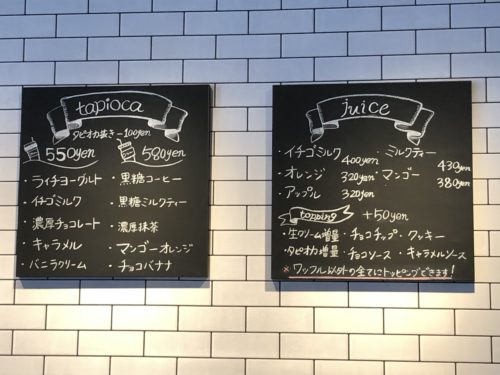 tapioca
タピオカ抜き -100yen
550yen 580yen
・ライチヨーグルト ・黒糖コーヒー
・イチゴミルク ・黒糖ミルクティー
・濃厚チョコレート ・濃厚抹茶
・キャラメル ・マンゴーオレンジ
・バニラクリーム ・チョコバナナ
juice
・イチゴミルク 400yen ミルクティー 430yen
・オレンジ 320yen ・マンゴー 380yen
・アップル 320yen
topping +50yen
・生クリーム増量 ・チョコチップ ・クッキー
・タピオカ増量 ・チョコソース ・キャラメルソース
※ワッフル以外の全てにトッピングできます!